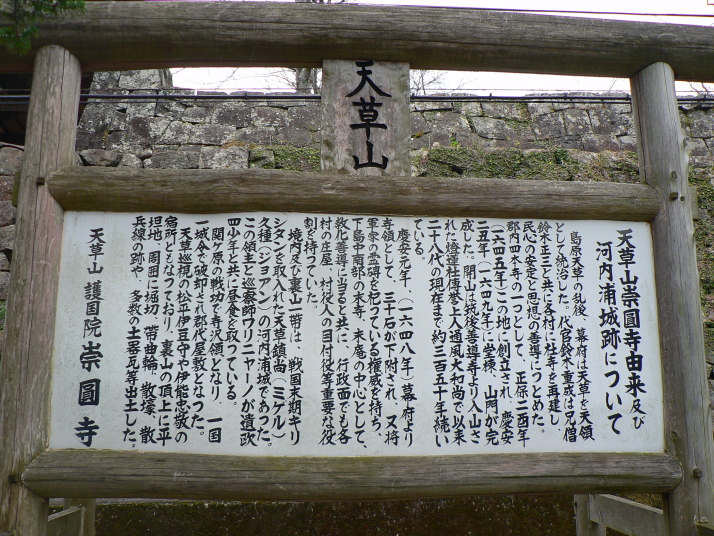 天草山
天草山崇圓寺由来及び
河内浦城跡について
島原天草の乱後、幕府は天草を天領
として統治した。代官鈴木重成は兄僧
鈴木正三と共に各村に社寺を再建し
民心の安定と思想の善導につとめた。
郡内四本寺の一つとして、正保二酉年
(一六四五年)この地に創立され、慶安
二丑年(一六四九年)に堂棟、山門が完
成した。開山は筑後善導寺より入山さ
れた燈蓮社傳誉上人通風大和尚で以来
二十八代の現在まで約三百五十年続い
ている。
慶安元年、(一六四八年)幕府より
寺領として、三十石が下附され、又将
軍家の霊碑を祀っている権威を持ち、
下島中南部の末寺、末庵の中心として、
教化善導に当ると共に、行政面でも各
村の庄屋、村役人の目付役等重要な役
割を持っていた。
境内及び裏山一帯は、戦国末期キリ
シタンを取入れた天草鎮尚(ミゲル)
久種(ジョアン)の河内浦城であった。
この領主と巡察師ワリニヤーノが遣欧
四少年と共に昼食を取っている。
関ヶ原の戦功で寺沢領となり、一国
一城令で破却され郡代屋敷となった。
天草巡視の松平伊豆守や伊能忠敬の
宿所ともなっており、裏山の頂上に平
坦地、周囲に堀切、帯曲輪、散壕、散
兵線の跡や、多数の土器瓦等出土した。
天草山 護国院 崇圓寺